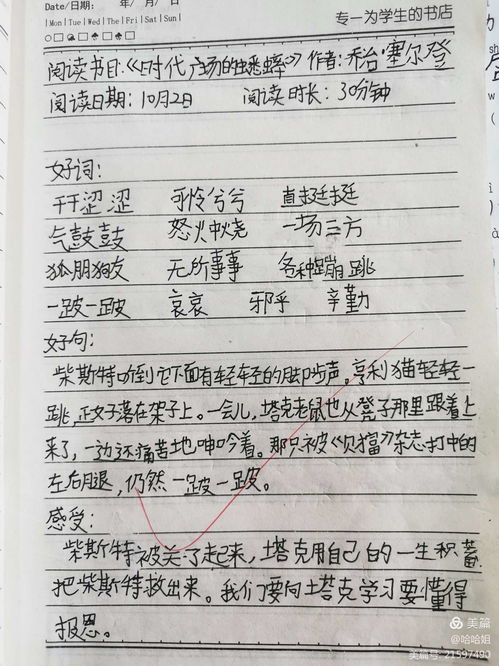 Date/日期: 年/ 月/ 日
专一为学生的书店
Mon|Tue|Wed|Thu|Fri|Sat|Sun|
阅读书目:《时代广场的蟋蟀》 作者:乔治塞尔登
阅读日期:10月2日 阅读时长:30分钟
好词:
干干涩涩 可怜兮兮 直挺挺
气鼓鼓 怒火中烧
狐朋狗友 无所事事 各种蹦跳
一跛一跛 哀哀 邪乎 辛勤
好句:
柴斯特听到它下面有轻轻的脚步声。亨利猫轻轻一
跳,正好落在架子上。一会儿,塔克老鼠也从凳子那里跟着上
来了,一边还痛苦地呻吟着。那只被《贝猫》杂志打中的
左后腿,仍然一跛一跛。
感受:
柴斯特被关了起来,塔克用自己的一生积蓄
把柴斯特救出来。我们要向塔克学习要懂得
报恩。
美篇
@哈哈姐
美篇号:21597490